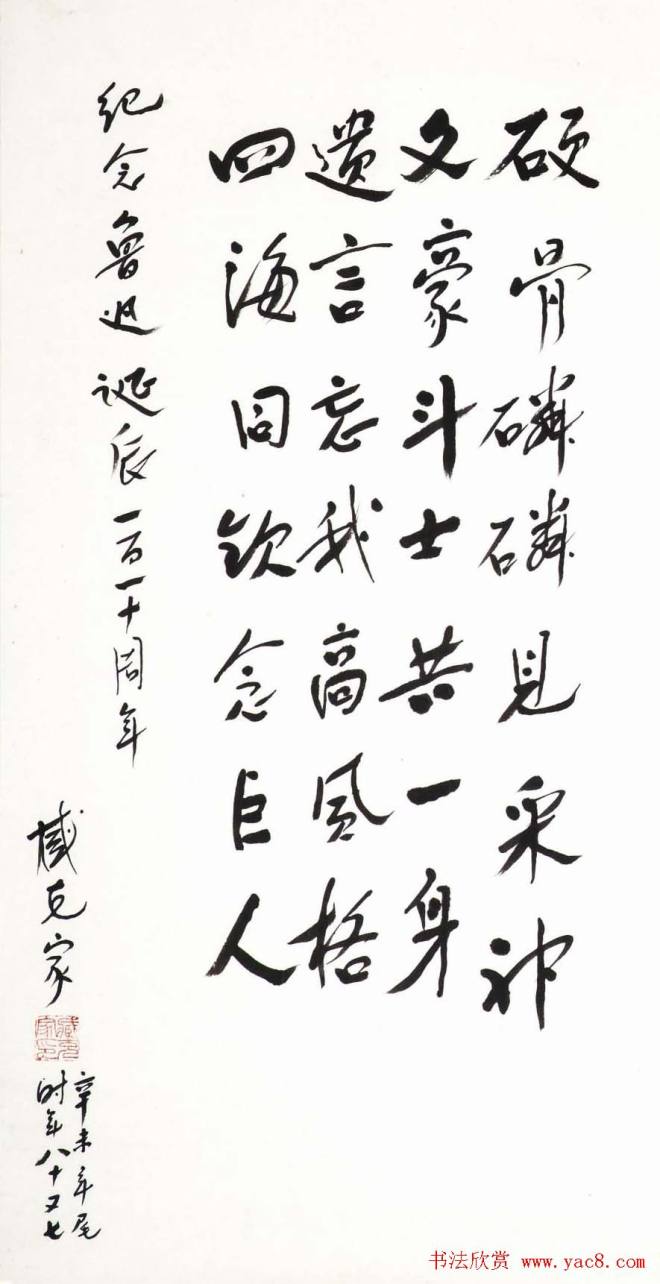 硕骨磷磷见采神
文豪斗士共一身
遗言忘我高风格
四海同钦念巨人
纪念鲁迅诞辰一百一十周年
臧克家
辛未年尾
时年八十又七
书法欣赏 www.yac8.com